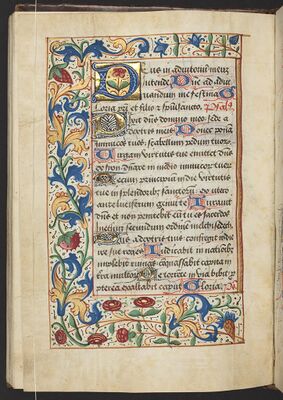 Deus in adiutorium meum
intende Dne ad adiu
uandum me festina G
loria pri et filio et spui sancto. Psal9.
Dixit dns domino meo sede a
dextris meis Donec pona
inimicos tuos: scabellum pedum tuor
Virgam virtutis tue emittet dns
ex sion dnare in medio inimicor tuor
Tecum principium in die virtutis
tue in splendorib9 sanctor ex utero
ante luciferum genui te Iurauit
dns et non penitebit eu tu es sacerdos
in eternum secundum ordine melchisedech
Dns a dextris tuis confregit in die
ire sue reges Iudicabit in natioib9
implebit ruinas: conquassabit capita in
tra multor De torrente in via bibet p
pterea exaltabit caput Gloria. Ps